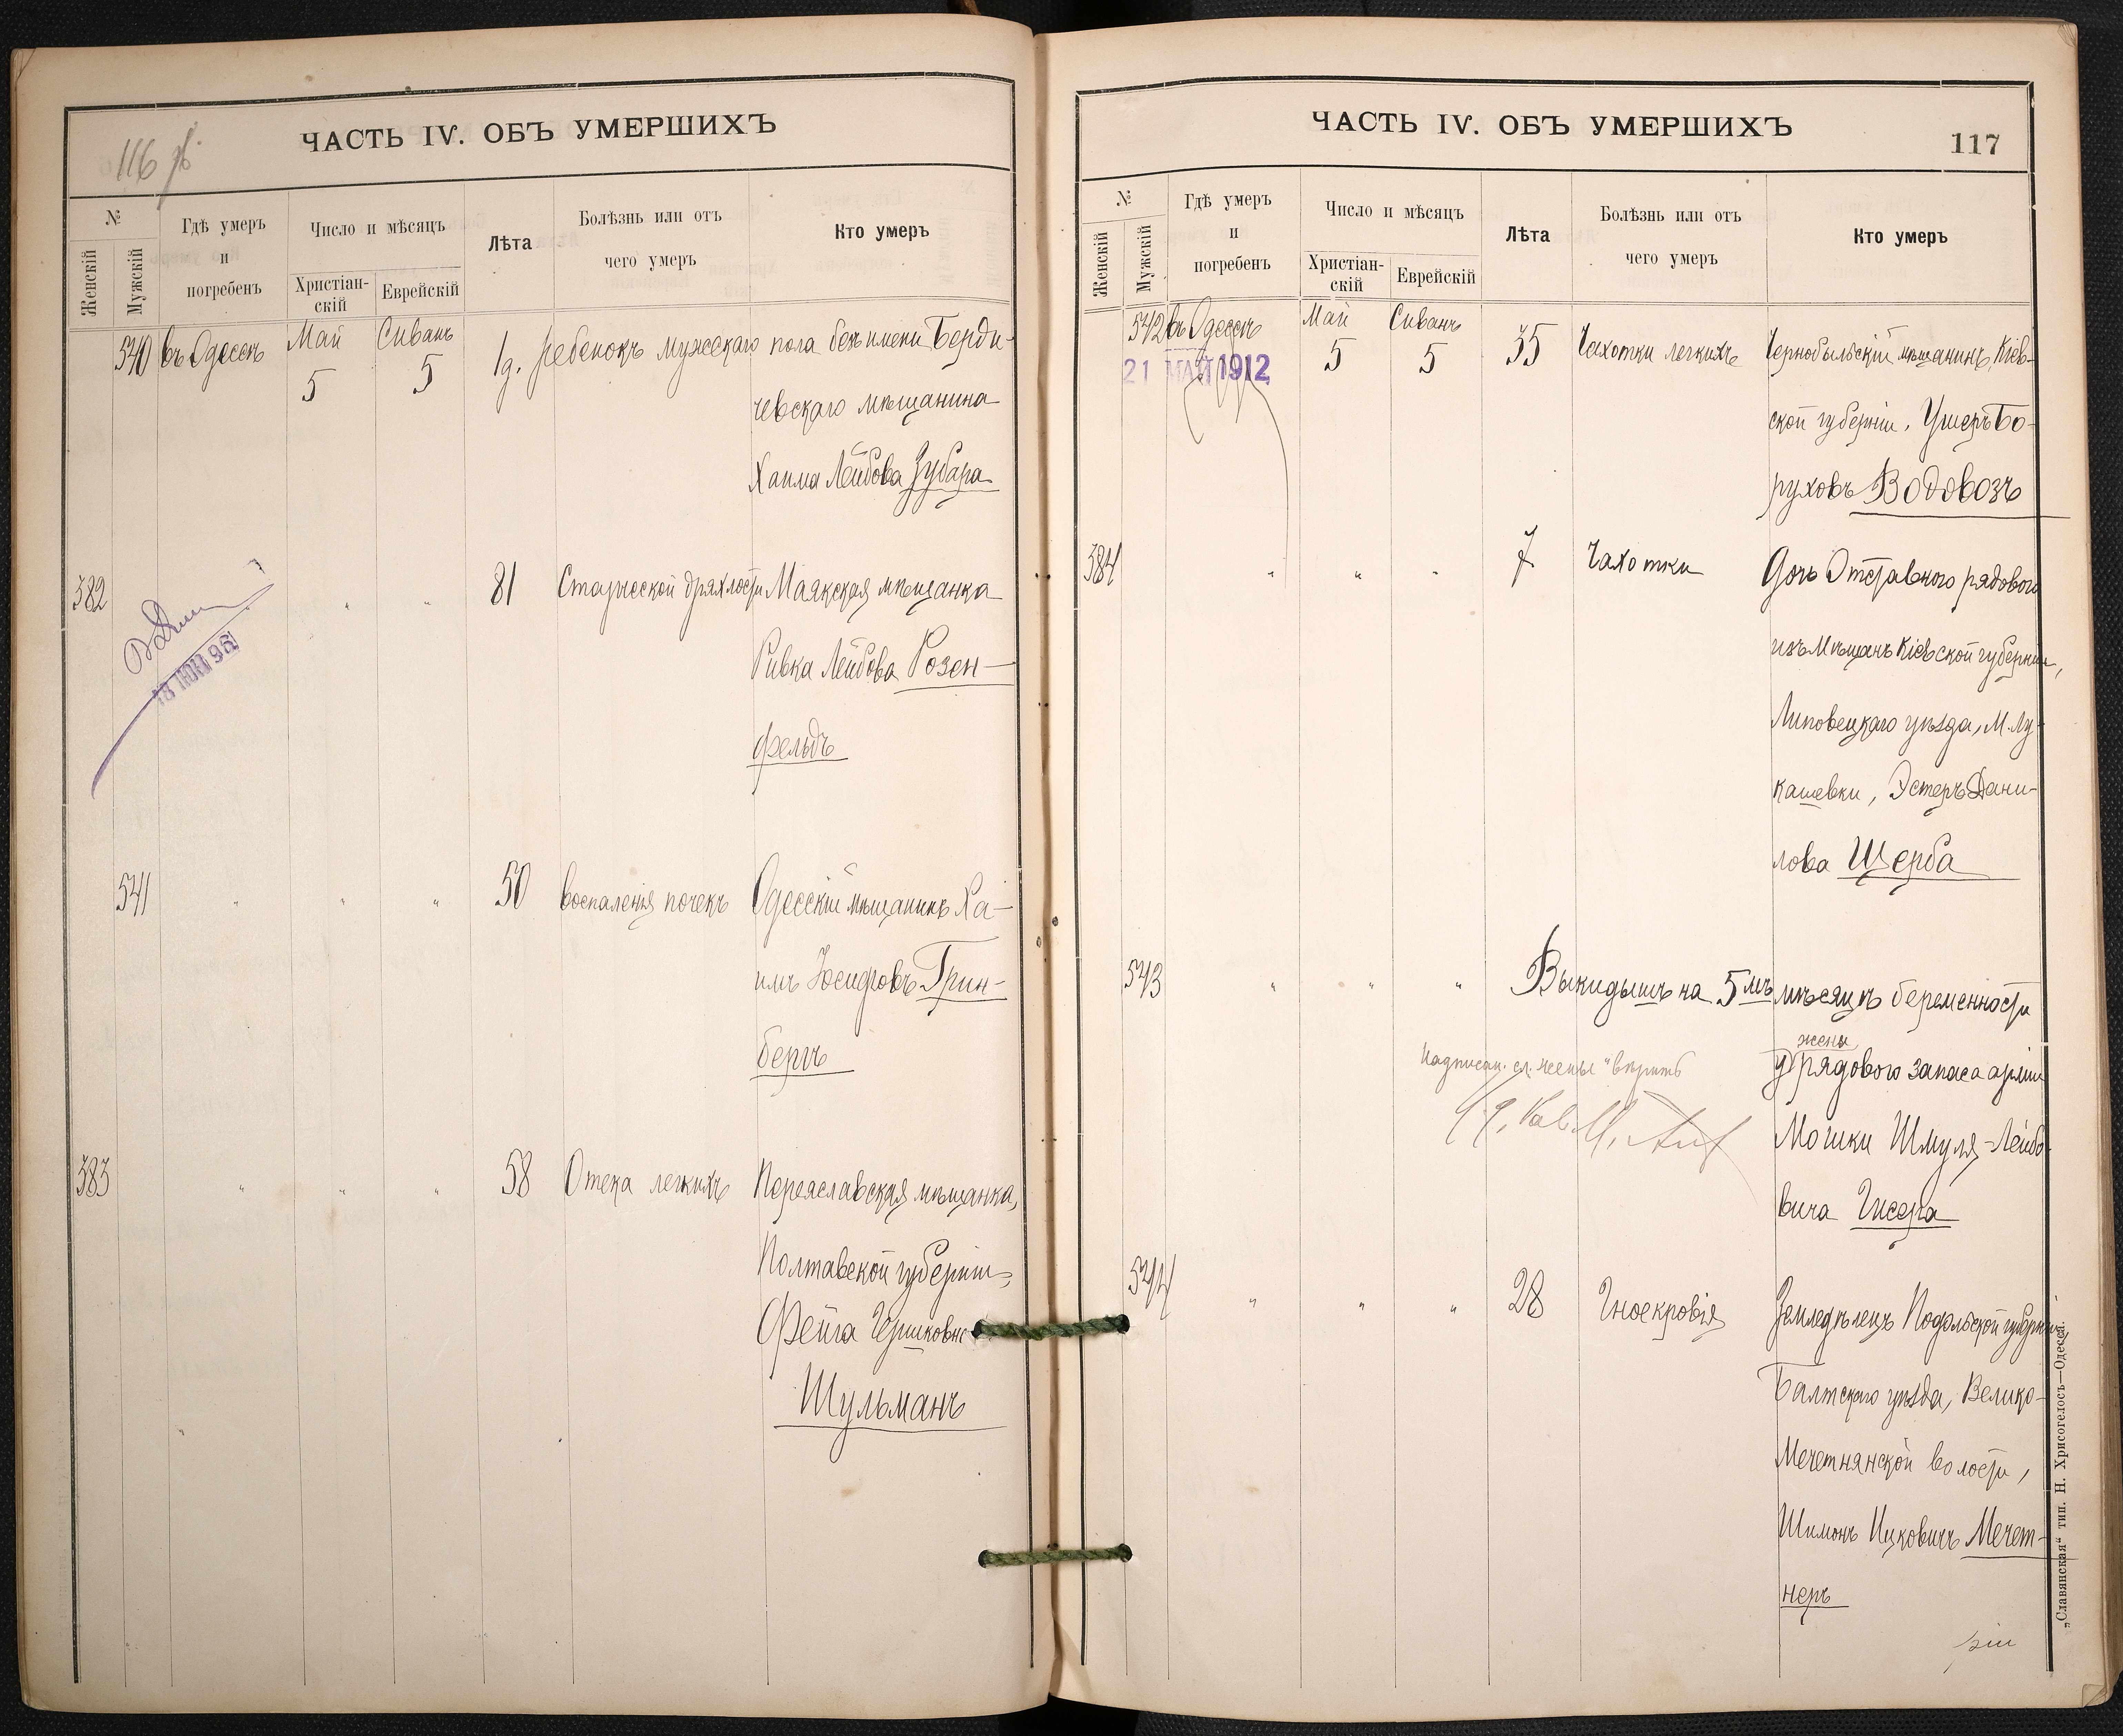 116 об.
ЧАСТЬ IV. ОБЪ УМЕРШИХЪ
№
Женскій
Мужскій
Гдѣ умеръ
и
погребенъ
Число и мѣсяцъ
Христіан-
скій
Еврейскій
Лѣта
Болѣзнь или отъ
чего умеръ
Кто умеръ
540 въ Одессѣ Май 5 Сиванъ 5 1 д. Ребенокъ мужескаго пола безъ имени Берди-
чевскаго мѣщанина
Хаима Лейбова Зубара
382 " " 81 Старческой дряхлости Маякская мѣщанка
Ривка Лейбова Розен-
фельдъ
18 ІЮН
541 " " " 50 Воспаленія почекъ Одесскій мѣщанинъ Ха-
имъ Іосифовъ Грин-
бергъ
383 " " " 58 Отека легкихъ Переяславская мѣщанка,
Полтавской губерніи,
Фейга Гершковна
Шульманъ
ЧАСТЬ IV. ОБЪ УМЕРШИХЪ
117
№
Женскій
Мужскій
Гдѣ умеръ
и
погребенъ
Число и мѣсяцъ
Христіан-
скій
Еврейскій
Лѣта
Болѣзнь или отъ
чего умеръ
Кто умеръ
542 въ Одессѣ Май 5 Сиванъ 5 35 Чахотки легкихъ Чернобыльскій мѣщанинъ, Кіев-
21 МАЙ 1912
ской губерніи, Ушеръ Бо-
руховъ Водовозъ
384 " " " 7 Чахотки Дочь Отставного рядового
изъ Мѣщанъ Кіевской губерніи,
Липовецкаго уѣзда, М. Лу-
кашевки, Эстеръ Дани-
лова Щерба
543 " " " Выкидышъ на 5мъ мѣсяцѣ беременности
жены
у рядового запаса арміи
Надписан. сл. "жены" вѣрить
Мошки Шмуля-Лейбо-
вича Гисера
544 " " " 28 Гноекровія Земледѣлецъ Подольской губерніи,
Балтскаго уѣзда, Велико-
Мечетнянской волости,
Шимонъ Ицковичъ Мечет-
неръ
„Славянская“ тип. Н. Хрисогелосъ—Одесса.